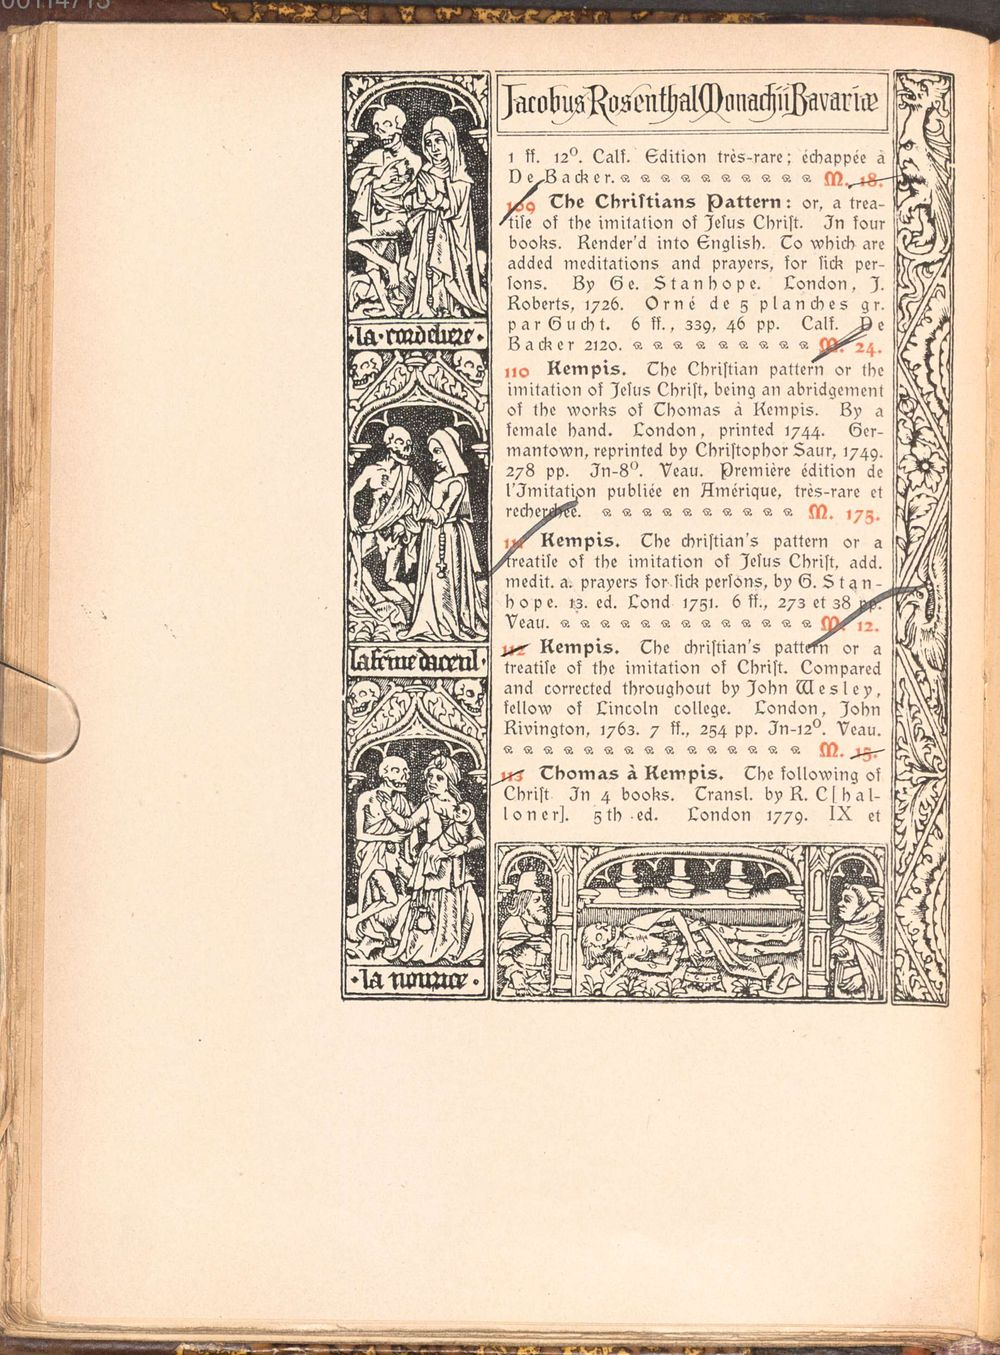 00114715
Jacobus Rosenthal Monachii Bavariæ
1 ff. 12⁰. Calf. Edition très-rare; échappée à
De Backer. M. 18.
109 The Chriſtians Pattern: or, a trea-
tiſe of the imitation of Jeſus Chriſt. In four
books. Render'd into English. To which are
added meditations and prayers, for ſick per-
ſons. By Ge. Stanhope. London, J.
Roberts, 1726. Orné de 5 planches gr.
par Gucht. 6 ff., 339, 46 pp. Calf. De
Backer 2120. M. 24.
110 Kempis. The Chriſtian pattern or the
imitation of Jeſus Chriſt, being an abridgement
of the works of Thomas à Kempis. By a
female hand. London, printed 1744. Ger-
mantown, reprinted by Chriſtophor Saur, 1749.
278 pp. In-8⁰. Veau. Première édition de
l'Imitation publiée en Amérique, très-rare et
recherchée. M. 175.
111 Kempis. The chriſtian's pattern or a
treatiſe of the imitation of Jeſus Chriſt, add.
medit. a. prayers for ſick perſons, by G. Stan-
hope. 13. ed. Lond 1751. 6 ff., 273 et 38 pp.
Veau. M. 12.
112 Kempis. The chriſtian's pattern or a
treatiſe of the imitation of Chriſt. Compared
and corrected throughout by John Wesley,
fellow of Lincoln college. London, John
Rivington, 1763. 7 ff., 254 pp. In-12⁰. Veau.
M. 15.
113 Thomas à Kempis. The following of
Chriſt In 4 books. Transl. by R. C[hal-
loner]. 5th ed. London 1779. IX et
la cordeliere
la feme daceul
la nourice